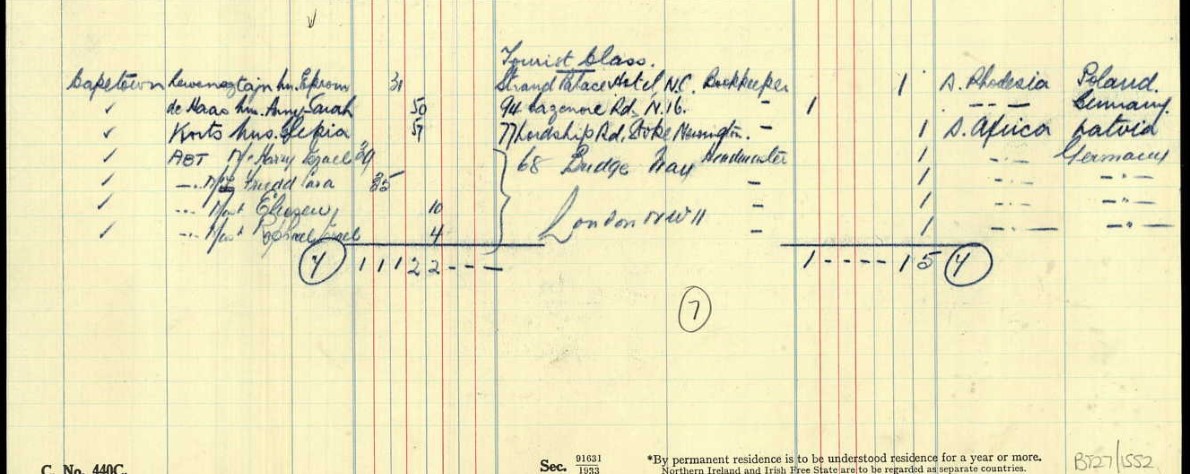 Tourist Class.
Capetown Mr. Efrom 31 Strand Palace Hotel N.C. Bookkeeper 1 S. Rhodesia Poland.
✓ de Haas Sarah 50 94 Rd. N.16. - 1 -·- Germany.
✓ 57 77 Lordship Rd, Stoke Newington. - 1 S. Africa Latvia
✓ ABT Mr Harry Israel 39 68 Way Headmaster 1 -·- Germany
✓ -·- Mrs 35 - 1 -·- -·-
✓ -·- Mast 10 London NW11 - 1 -·- -·-
✓ -·- Mast 4 - 1 -·- -·-
7 1 1 1 2 2 - - - 1 - - - - - 1 5 7
7
C. No. 440C. Sec. 91631/1933 *By permanent residence is to be understood residence for a year or more.
Northern Ireland and Irish Free State are to be regarded as separate countries.
BT27/1552